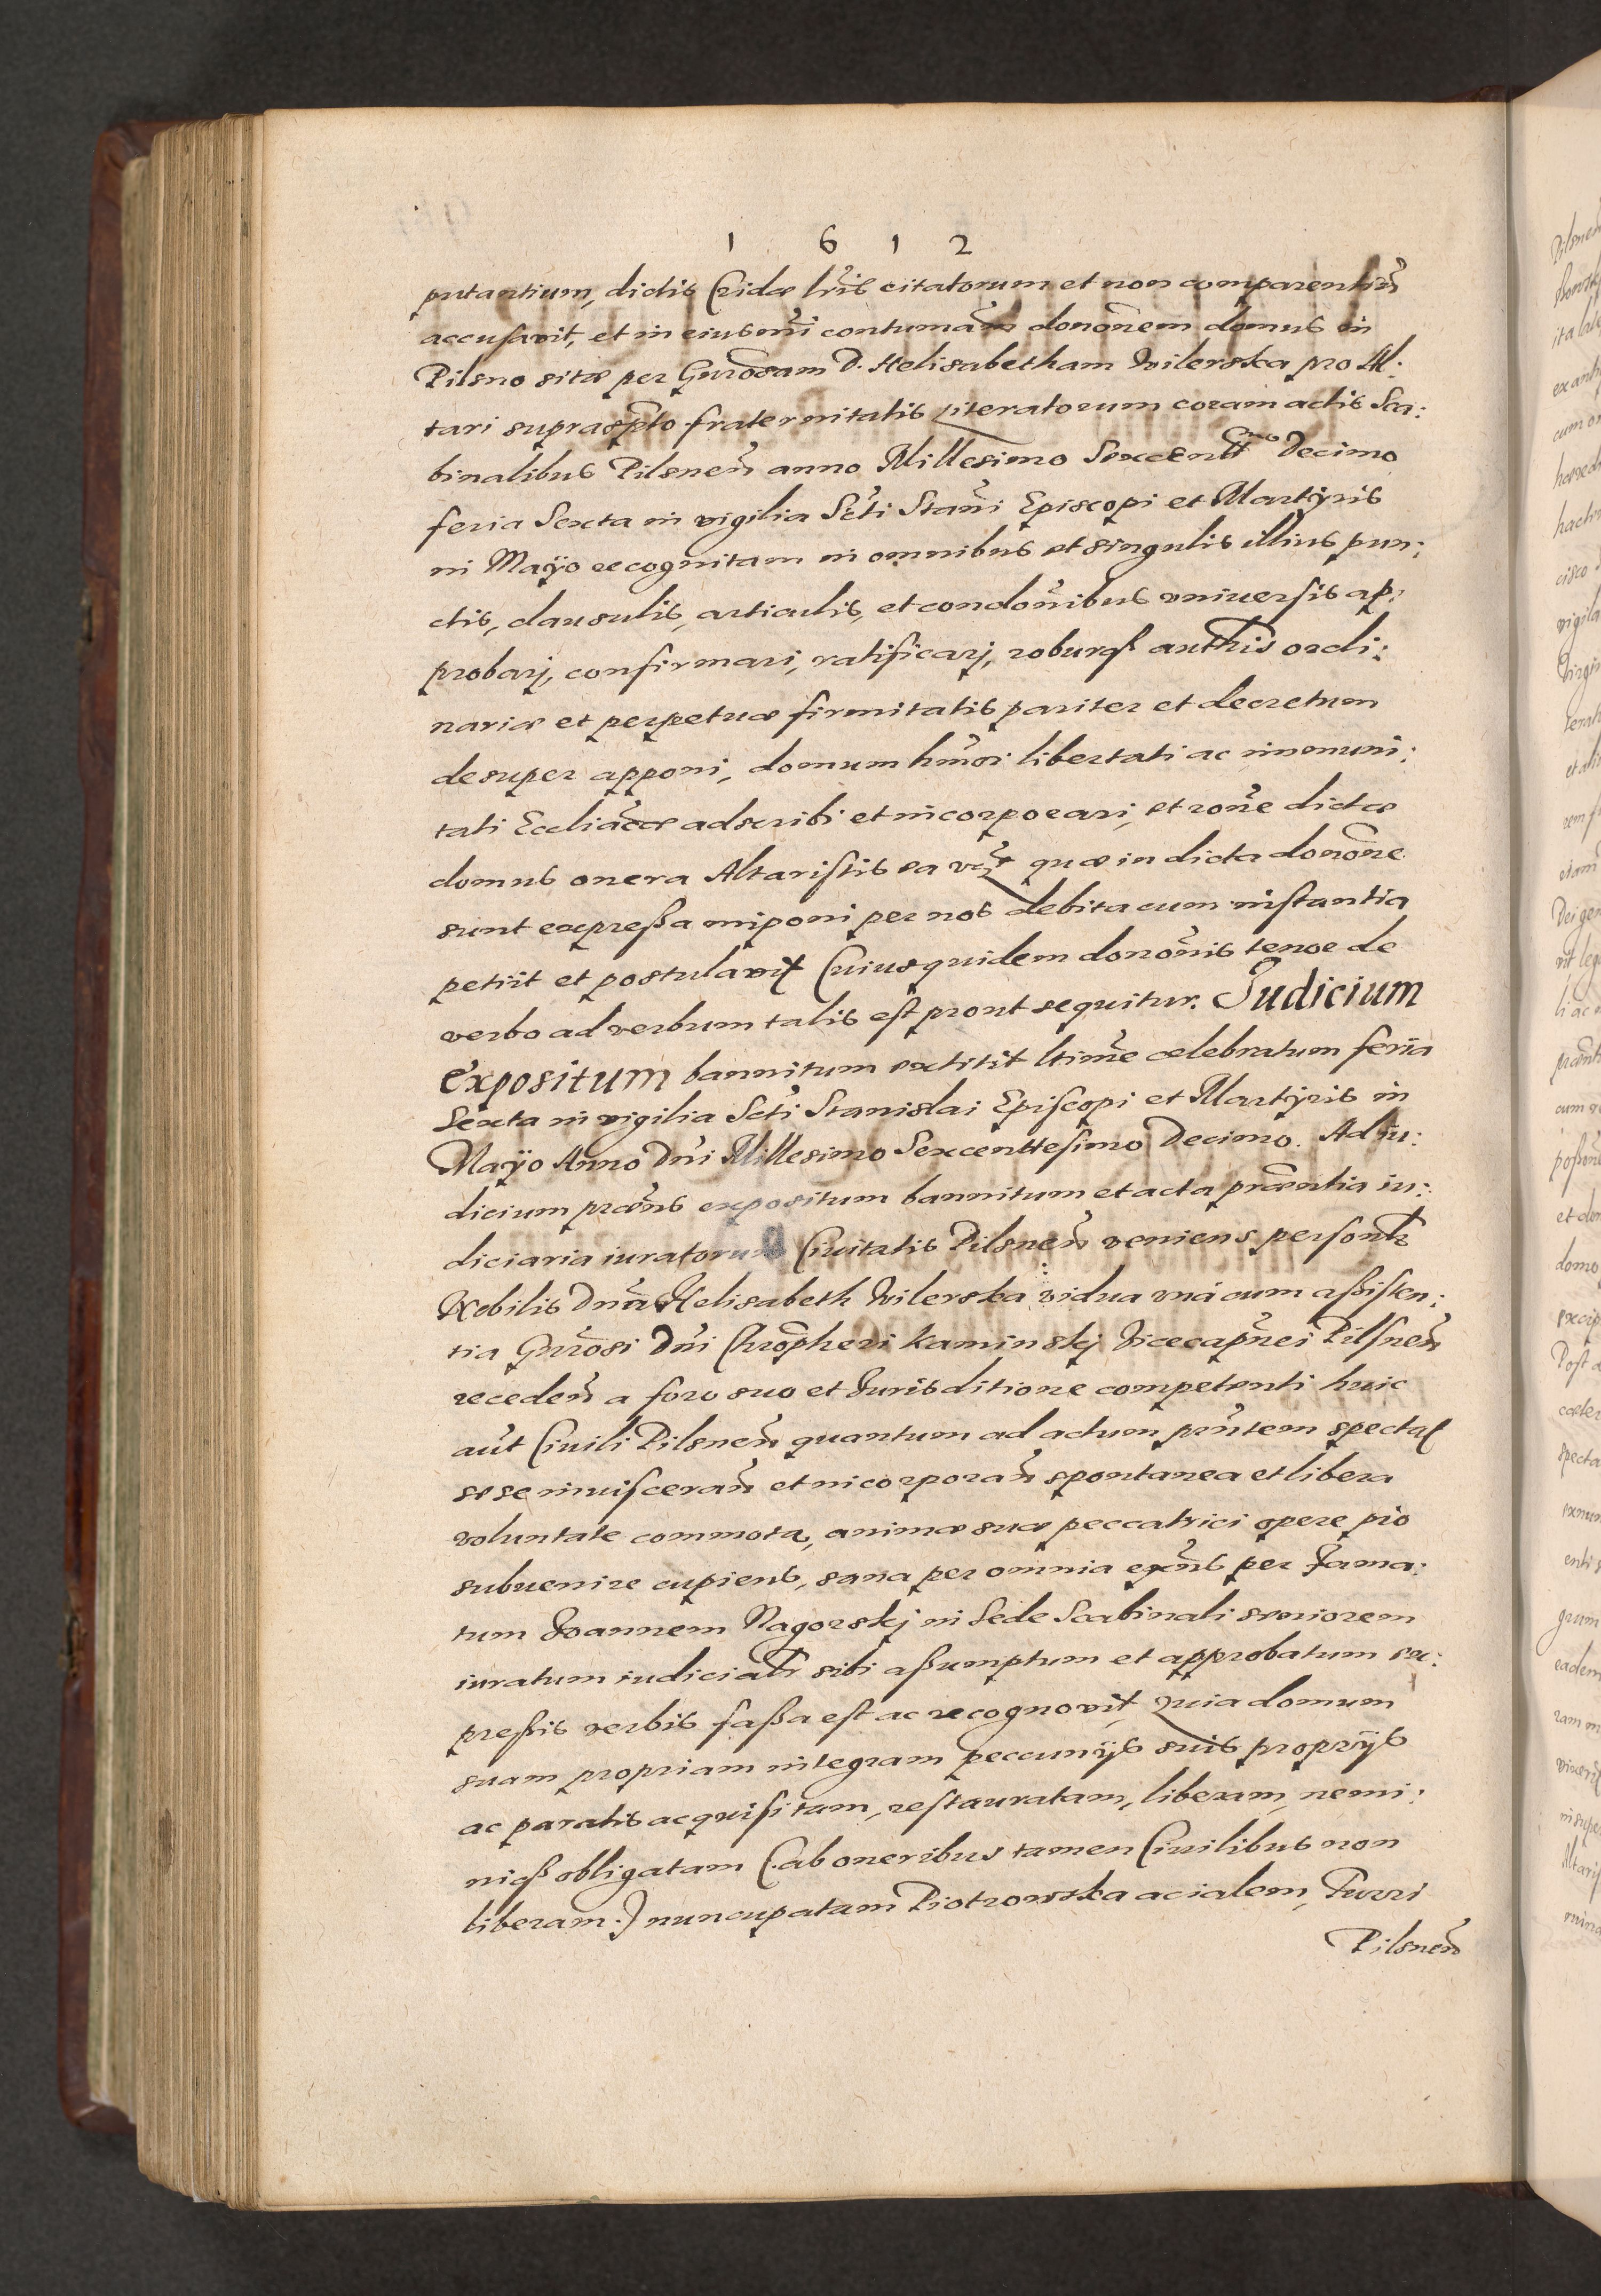 1 6 1 2
putantium, dictis Cridæ lrĩs citatorum et non comparentiũ
accusavit, et in eiusm̃i contumãm donõnem domus in
Pilsno sitæ per Gnrõsam D. Helisabetham Wilerska pro Al:
tari suprasp̃to fraternitatis Literatorum coram actis Sca:
binalibus Pilsneñ anno Millesimo Sexcentt[esi]mo Decimo
feria Sexta in vigilia Scti Stañi Episcopi et Martÿris
in Maÿo recognitam in omnibus et singulis illius pun:
ctis, clausulis, articulis, et condoñibus vniuersis ap:
probarj, confirmari, ratificarj, roburqȝ autħis ordi:
nariæ et perpetuæ firmitatis pariter et decretum
desuper apponi, domum hmõi libertati ac immuni:
tati Eccliãcæ adscribi et incorporari, et roñe dictæ
domus onera Altaristis ea vꝫ quæ in dicta donõne
sunt expreßa imponi per nos debita cum instantia
petijt et postulavit Cuiusquidem donõnis tenor de
verbo ad verbum talis est prout sequitur. Judicium
Expositum bannitum extitit ltime celebratum feria
Sexta in vigilia Scti Stanislai Episcopi et Martÿris in
Maÿo Anno Dñi Millesimo Sexcenttesimo Decimo. Ad iu:
dicium præñs expositum bannitum et acta præñtia iu:
diciaria iuratorum Ciuitatis Pilsneñ veniens personłr
Nobilis Dña Helisabeth Wilerska vidua vnà cum aßisten:
tia Gnrõsi Dñi Chrõpheri Kaminskj Vicecapñei Pilsneñ
recedeñ a foro suo et Jurisditione competenti huic
aũt Ciuili Pilsneñ quantum ad actum pñtem spectat
sese inuiscerañ et incorporañ spontanea et libera
voluntate commota, animæ suæ peccatrici opere pio
subuenire cupiens, sana per omnia exñs per Fama:
tum Joannem Nagorskj in Sede Scabinali seniorem
iuratum iudicialr sibi aßumptum et approbatum ex:
preßis verbis faßa est ac recognovit, Quia domum
suam propriam integram peccunijs suis proprijs
ac paratis acquisitam, restauratam, liberam, nemi:
niqȝ obligatam (:ab oneribus tamen Ciuilibus non
liberam:) nuncupatam Piotrowska acialem, Turri
Pilsneñ